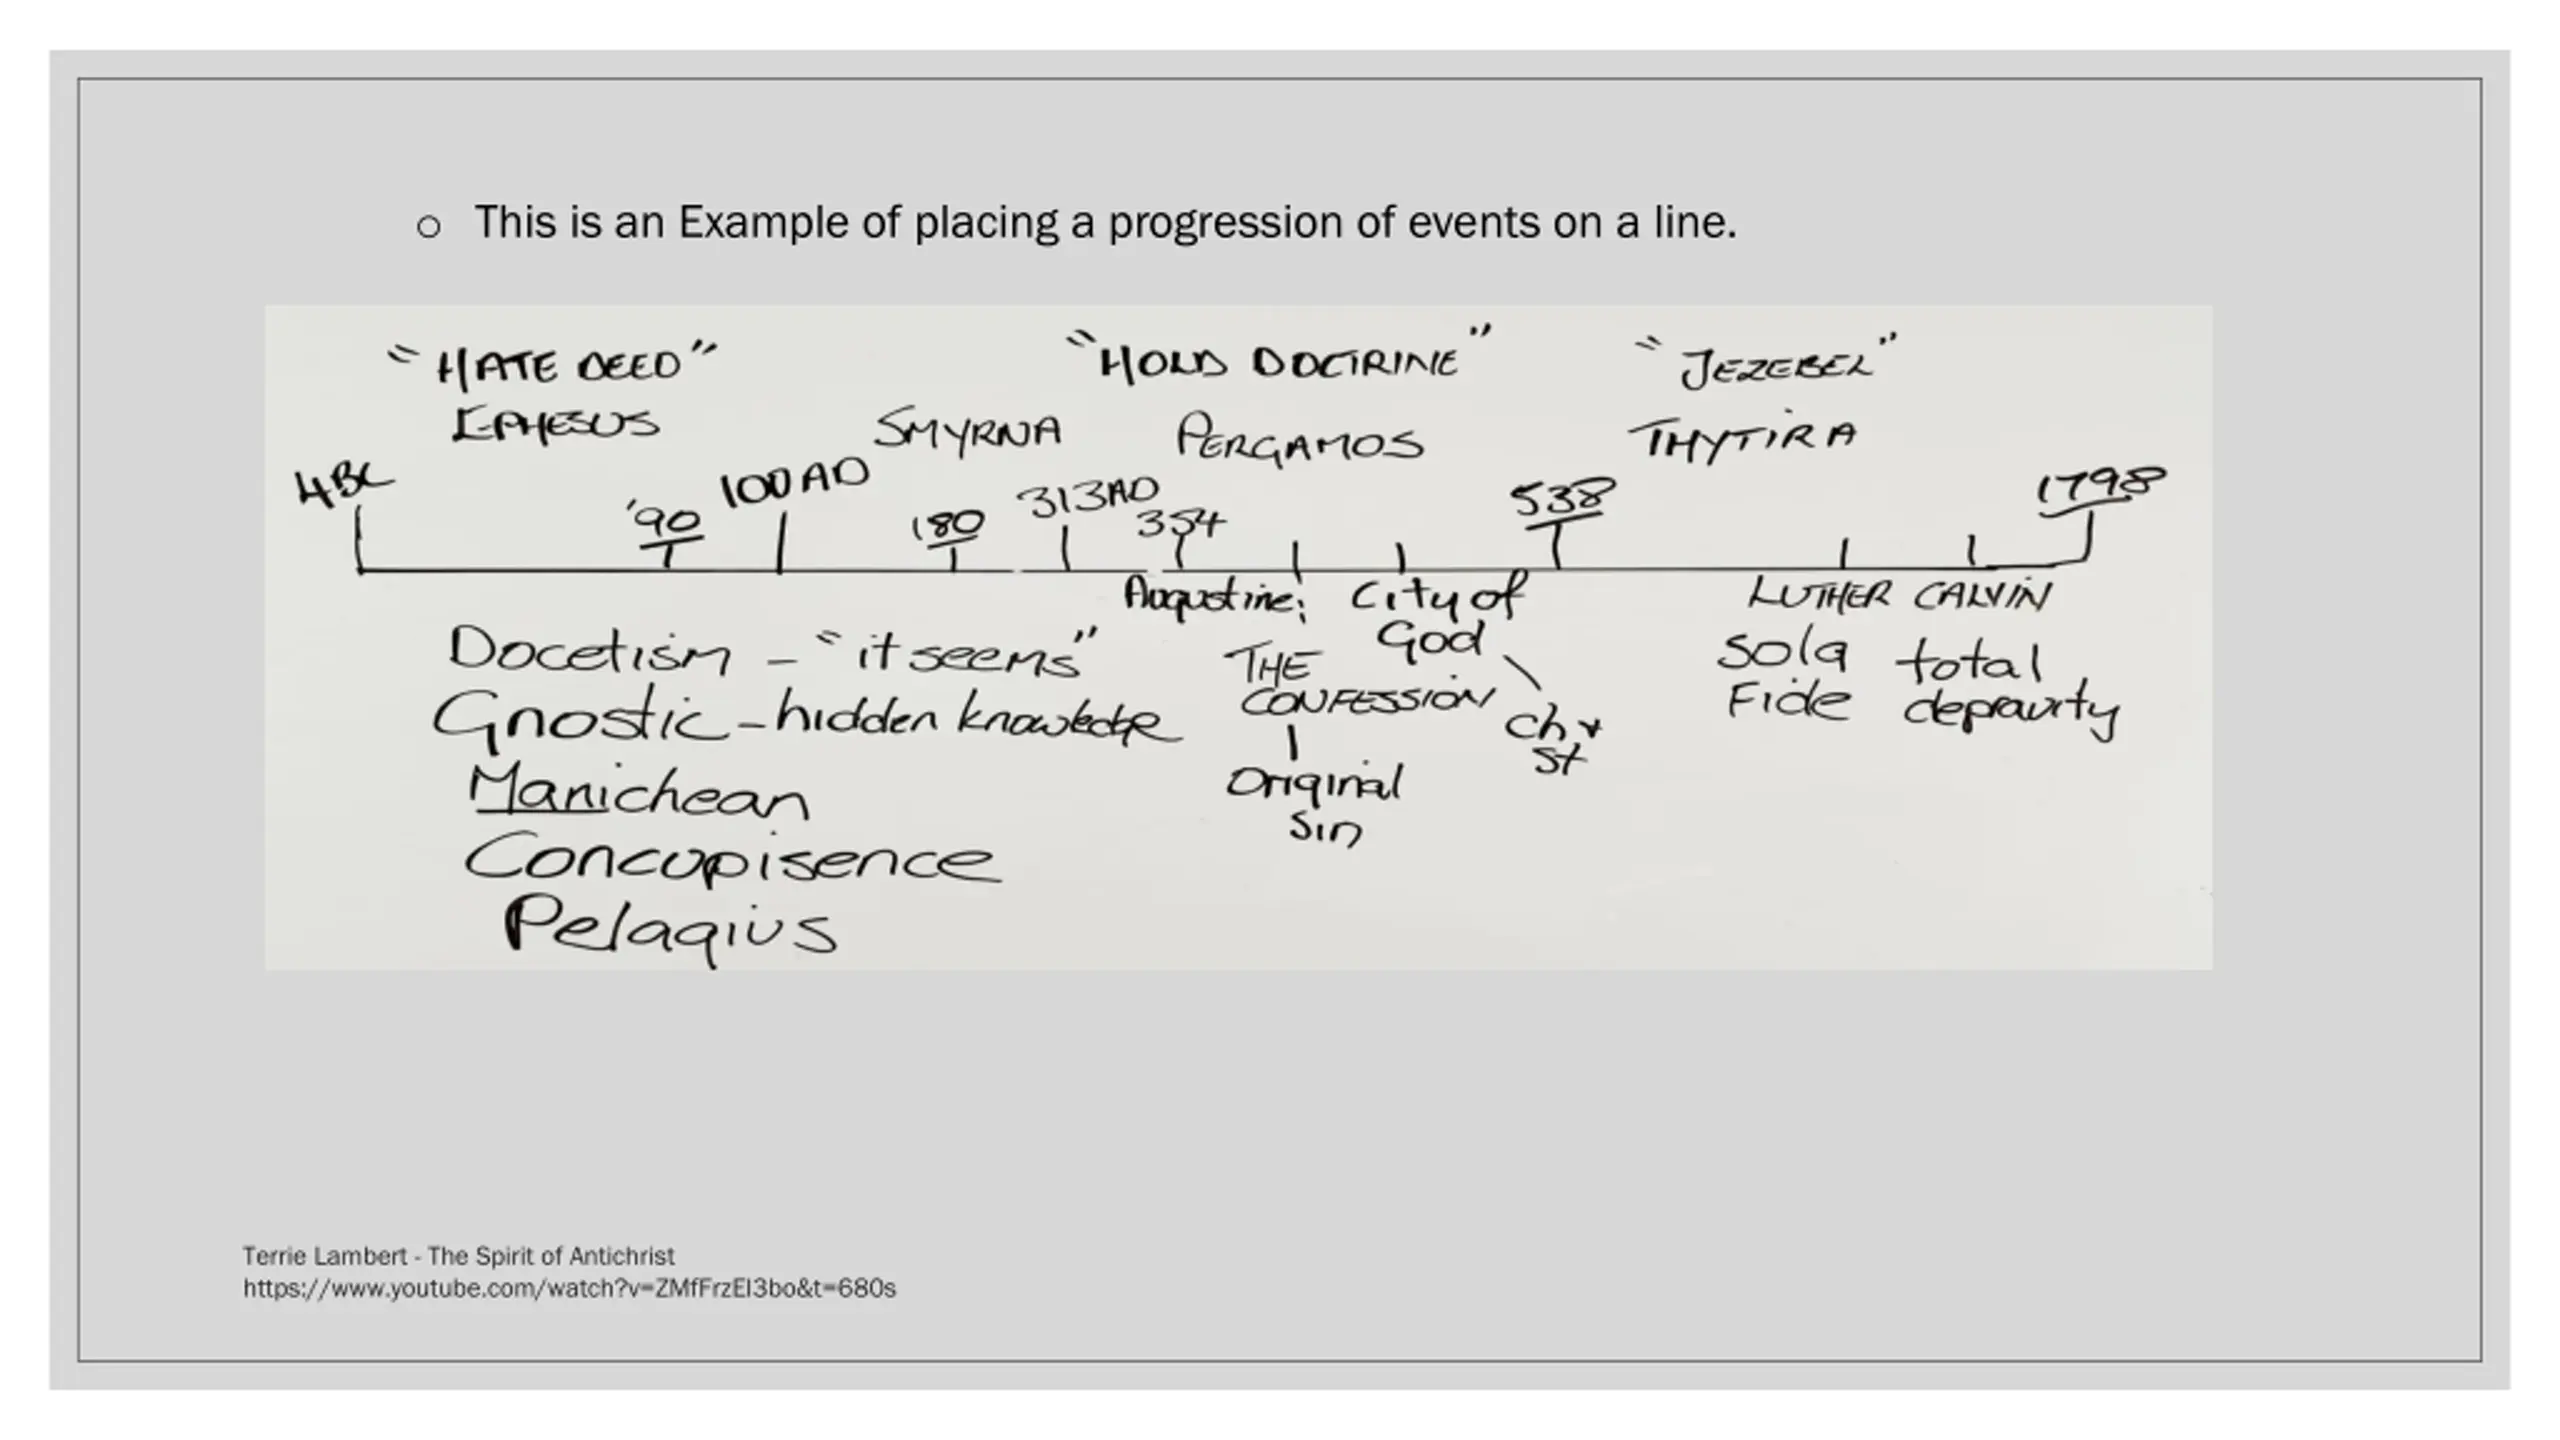 ○ This is an Example of placing a progression of events on a line.
"HATE DEED" "HOLD DOCTRINE" "JEZEBEL"
EPHESUS SMYRNA PERGAMOS THYTIRA
4BC '90 100AD 180 313AD 354 538 1798
Augustine: City of LUTHER CALVIN
God
Docetism - "it seems" THE sola total
Gnostic - hidden knowledge CONFESSION Fide depravity
ch +
st
Manichean Original
sin
Concupisence
Pelagius
Terrie Lambert - The Spirit of Antichrist
https://www.youtube.com/watch?v=ZMfFrzEI3bo&t=680s